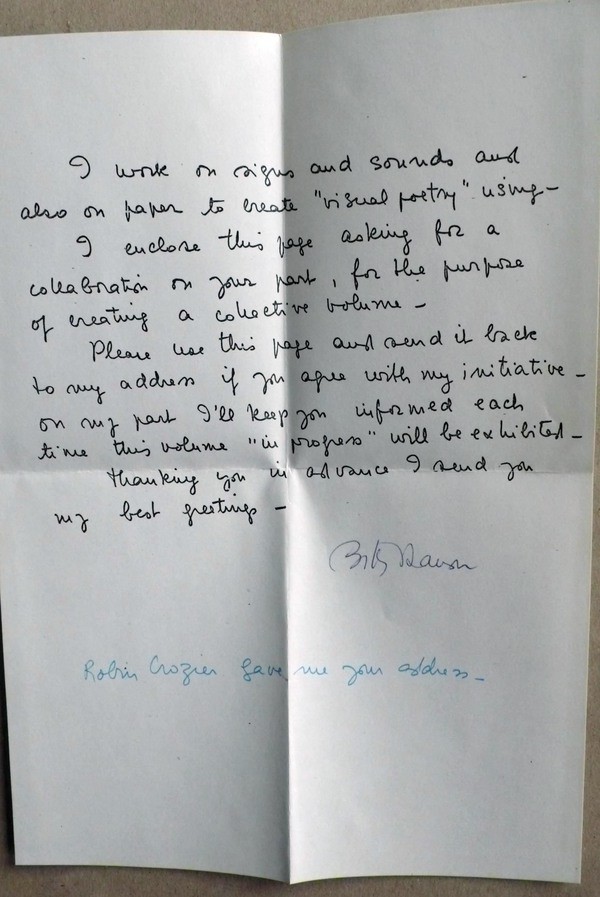 I work on signs and sounds and
also on paper to create "visual poetry" using-
I enclose this page asking for a
collaboration on your part, for the purpose
of creating a collective volume -
Please use this page and send it back
to my address if you agree with my initiative -
on my part I'll keep you informed each
time this volume "in progress" will be exhibited -
thanking you in advance I send you
my best greetings -
Robin Crozier gave me your address -